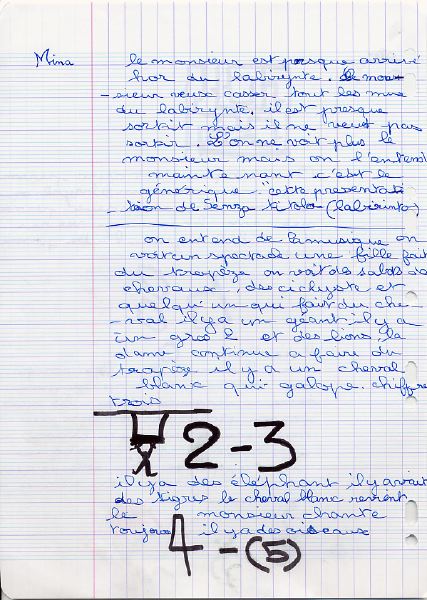 Mina
le monsieur est presque arrivé
hor du labirynte. Le mon-
-sieur veux casser tout les murs
du labirynte. il est presque
sortit mais il ne veut pas
sortir. L'on ne voit plus le
monsieur mais on l'entend
maintenant c'est le
générique "cette presentati
-tion de Senza titolo (labirinto)
on entend de la musique on
voit un spectacle une fille fait
du trapèze on voit des
chevaux, des ciclyste et
quelqu'un qui fait du che-
-val il y a un géant il y a
un gros 2 et des lions. la
dame continue a faire du
trapèze il y a un cheval
blanc qui galope. chiffre
trois
2-3
il y a des éléphant il y avait
des tigres le cheval blanc revient
le monsieur chante
toujours il y a des oiseaux
4-(5)